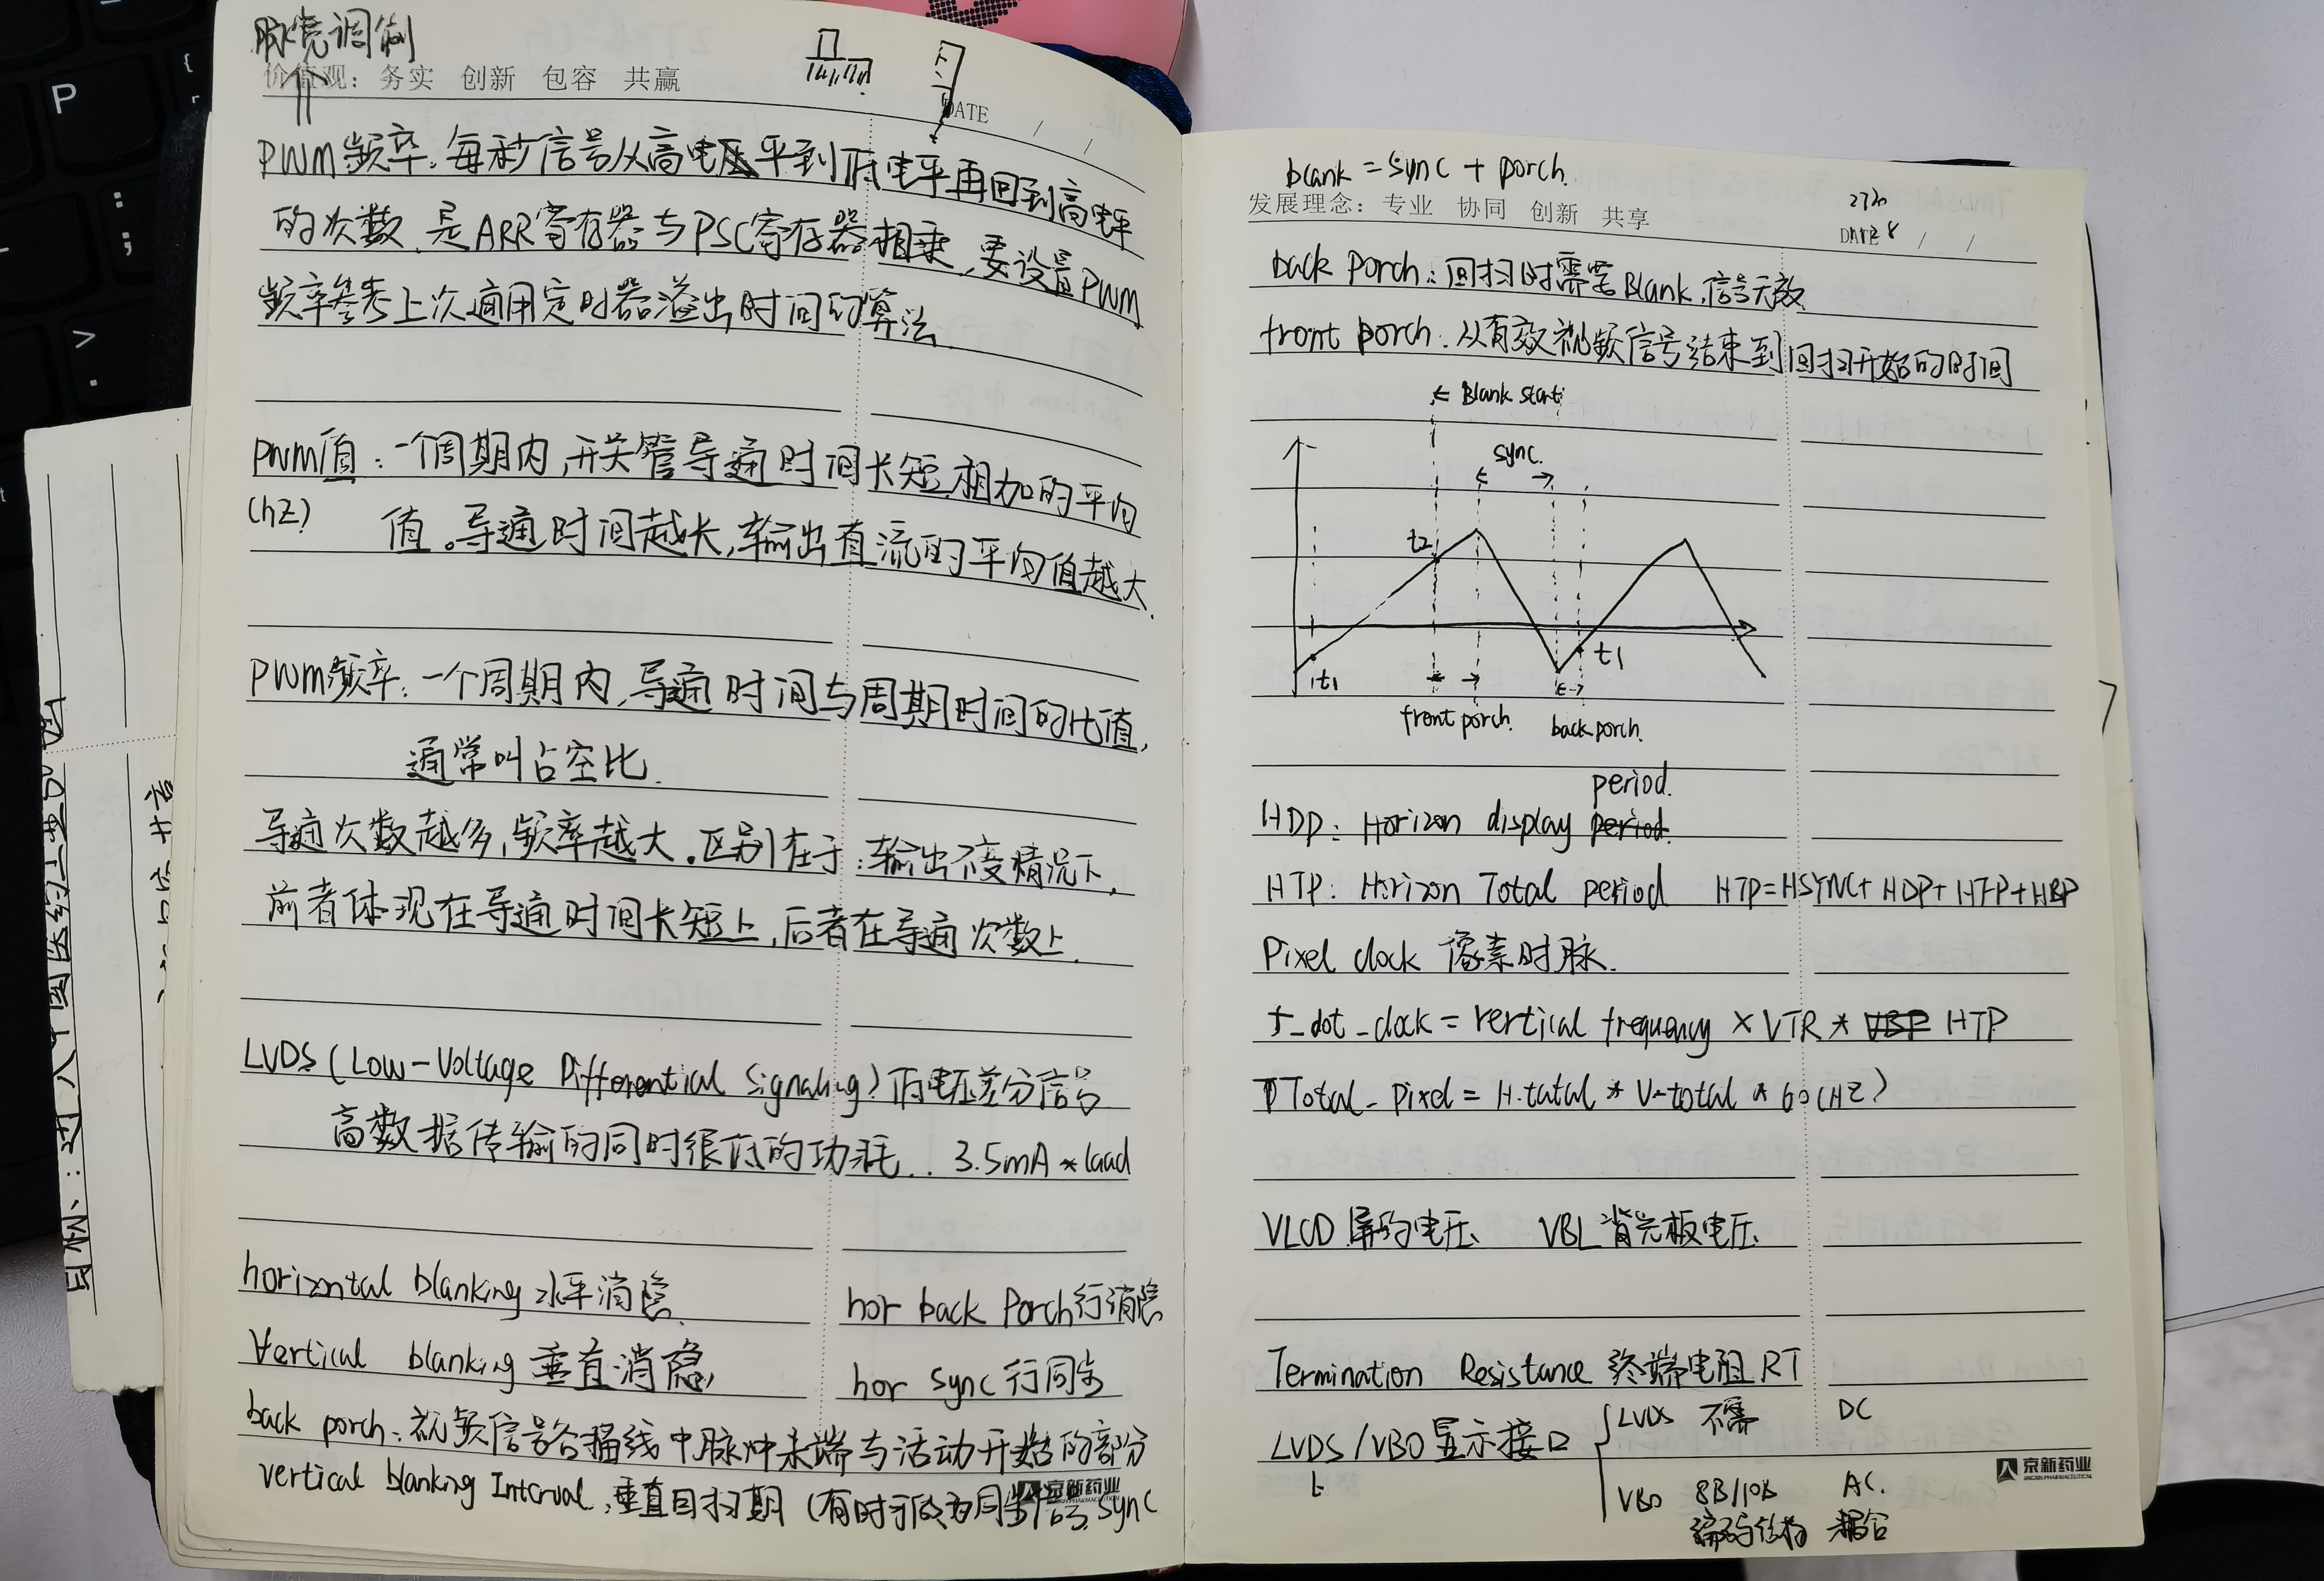 脉宽调制
价值观：务实 创新 包容 共赢
DATE / /
PWM频率：每秒信号从高电平到低电平再回到高电平
的次数，是ARR寄存器与PSC寄存器相乘，要设置PWM
频率参考上次通用定时器溢出时间的算法.
PWM值：一个周期内，开关管导通时间长短相加的平均
(hZ) 值。导通时间越长，输出直流的平均值越大.
PWM频率：一个周期内，导通时间与周期时间的比值，
通常叫占空比.
导通次数越多，频率越大。区别在于：输出不变情况下，
前者体现在导通时间长短上，后者在导通次数上.
LVDS (Low-Voltage Differential Signaling) 低电压差分信号
高数据传输的同时很低的功耗.. 3.5mA * load
horizontal blanking 水平消隐. hor back Porch 行消隐
Vertical blanking 垂直消隐, hor sync 行同步
back porch：视频信号各描线中脉冲末端与活动开始的部分
vertical blanking Interval，垂直回扫期（有时可做为同步信号 sync
京新药业
blank = sync + porch.
发展理念：专业 协同 创新 共享
DATE / /
back porch：回扫时需要Blank，信号无效
front porch：从有效视频信号结束到回扫开始的时间
← Blank start
sync.
← →
t2
t1
t1
front porch. back porch.
period.
HDP：Horizon display period
HTP：Horizon Total period HTP=HSYNC+HDP+HFP+HBP
Pixel clock 像素时脉.
f_dot_clock = vertical frequency × VTR * VBP HTP
Total_Pixel = H.total * V-total * 60(HZ)
VLCD 屏的电压 VBL 背光板电压
Termination Resistance 终端电阻 RT
LVDS 不需 DC
LVDS/VBO 显示接口
VBO 8B/10B AC.
编码结构 耦合
京新药业